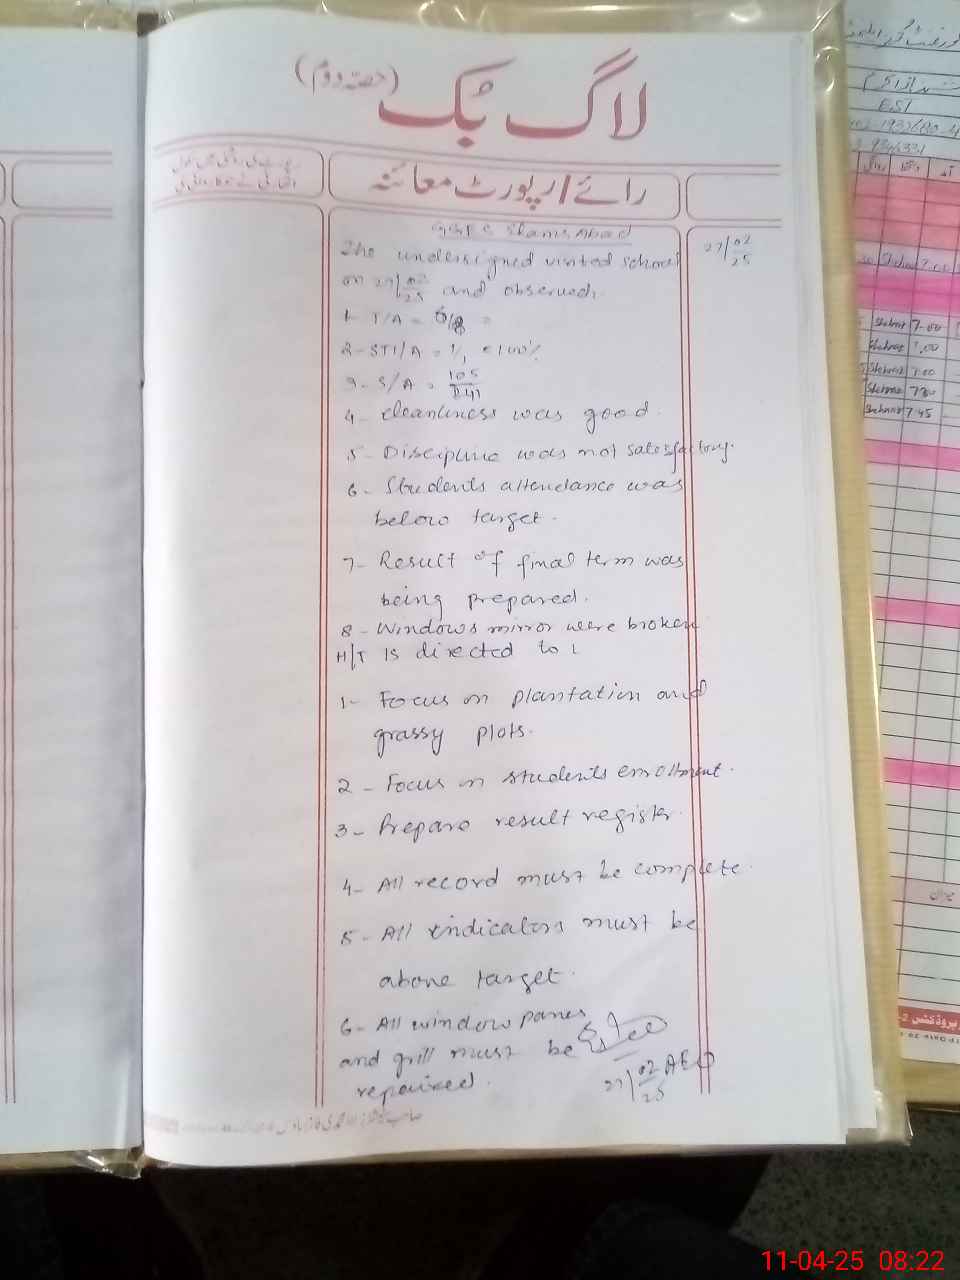 لاگ بک (حصہ دوم)
رائے / رپورٹ معائنہ
GGPS Shams Abad
27/02/25
The undersigned visited school
on 27/02/25 and observed:
1- T/A =
2- STI/A = 1/1 = 100%
3- S/A = 105/
4- cleanliness was good.
5- Discipline was not satesfactory.
6- Students attendance was
below target.
7- Result of final term was
being prepared.
8- Windows mirror were broken
H/T is directed to
1- Focus on plantation and
grassy plots.
2- Focus on students enrollment.
3- Prepare result register.
4- All record must be complete.
5- All indicators must be
above target.
6- All window panes
and grill must be
repaired.
27/02/25 AEO
EST
Shehnaz 7.00
Shehnaz 7.00
Shehnaz 7.00
Shehnaz 7.45
میزان
11-04-25 08:22